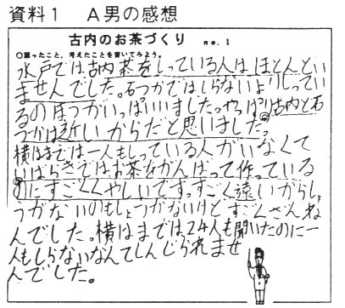 資料1 A男の感想
古内のお茶づくり
○思ったこと、考えたことを書いてみよう。
水戸では古内茶をしっている人はほとんどい
ませんでした。石つかではしらないよりしってい
るのほうがいっぱいいました。やっぱり古内と石
つかは近いからだと思いました。
横はまでは一人もしっている人がいなくて
いばらきではお茶をがんばって作っている
のにすごくくやしいです。すごく遠いからし
つかないのもしょうがないけどすごくざんね
んでした。横はまでは24人も聞いたのに一
人もしらないなんてしんじられませ
んでした。